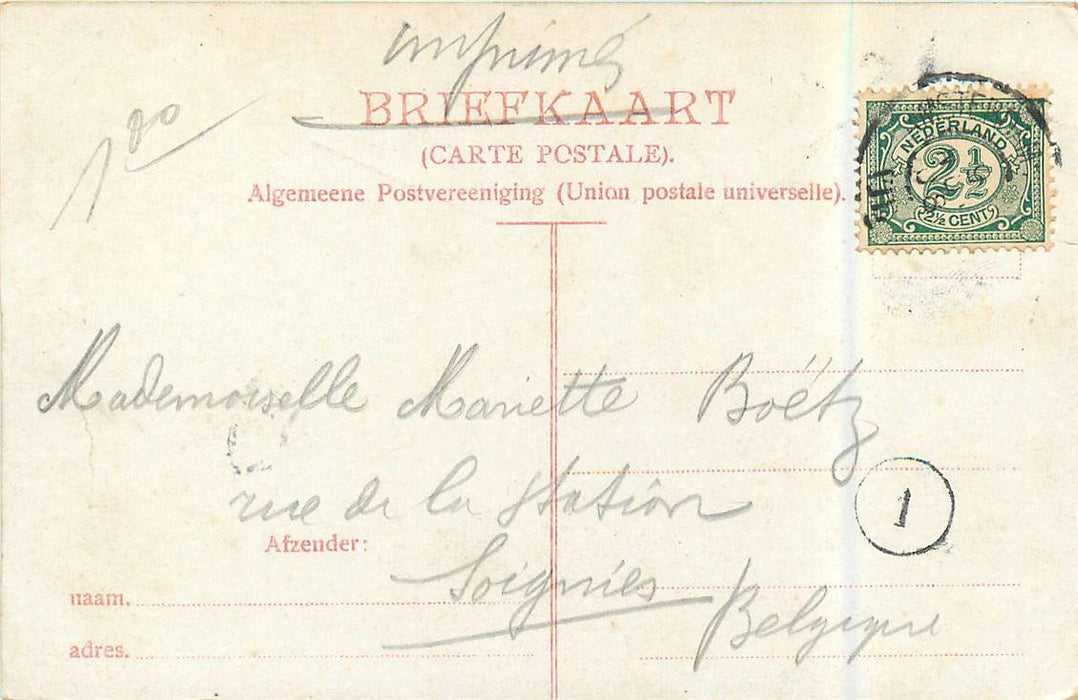 imprimé
BRIEFKAART
(CARTE POSTALE).
Algemeene Postvereeniging (Union postale universelle).
NEDERLAND
2½
2½ CENT
Mademoiselle Mariette Boëtz
rue de la Station
Soignies
Belgique
1
Afzender:
naam.
adres.